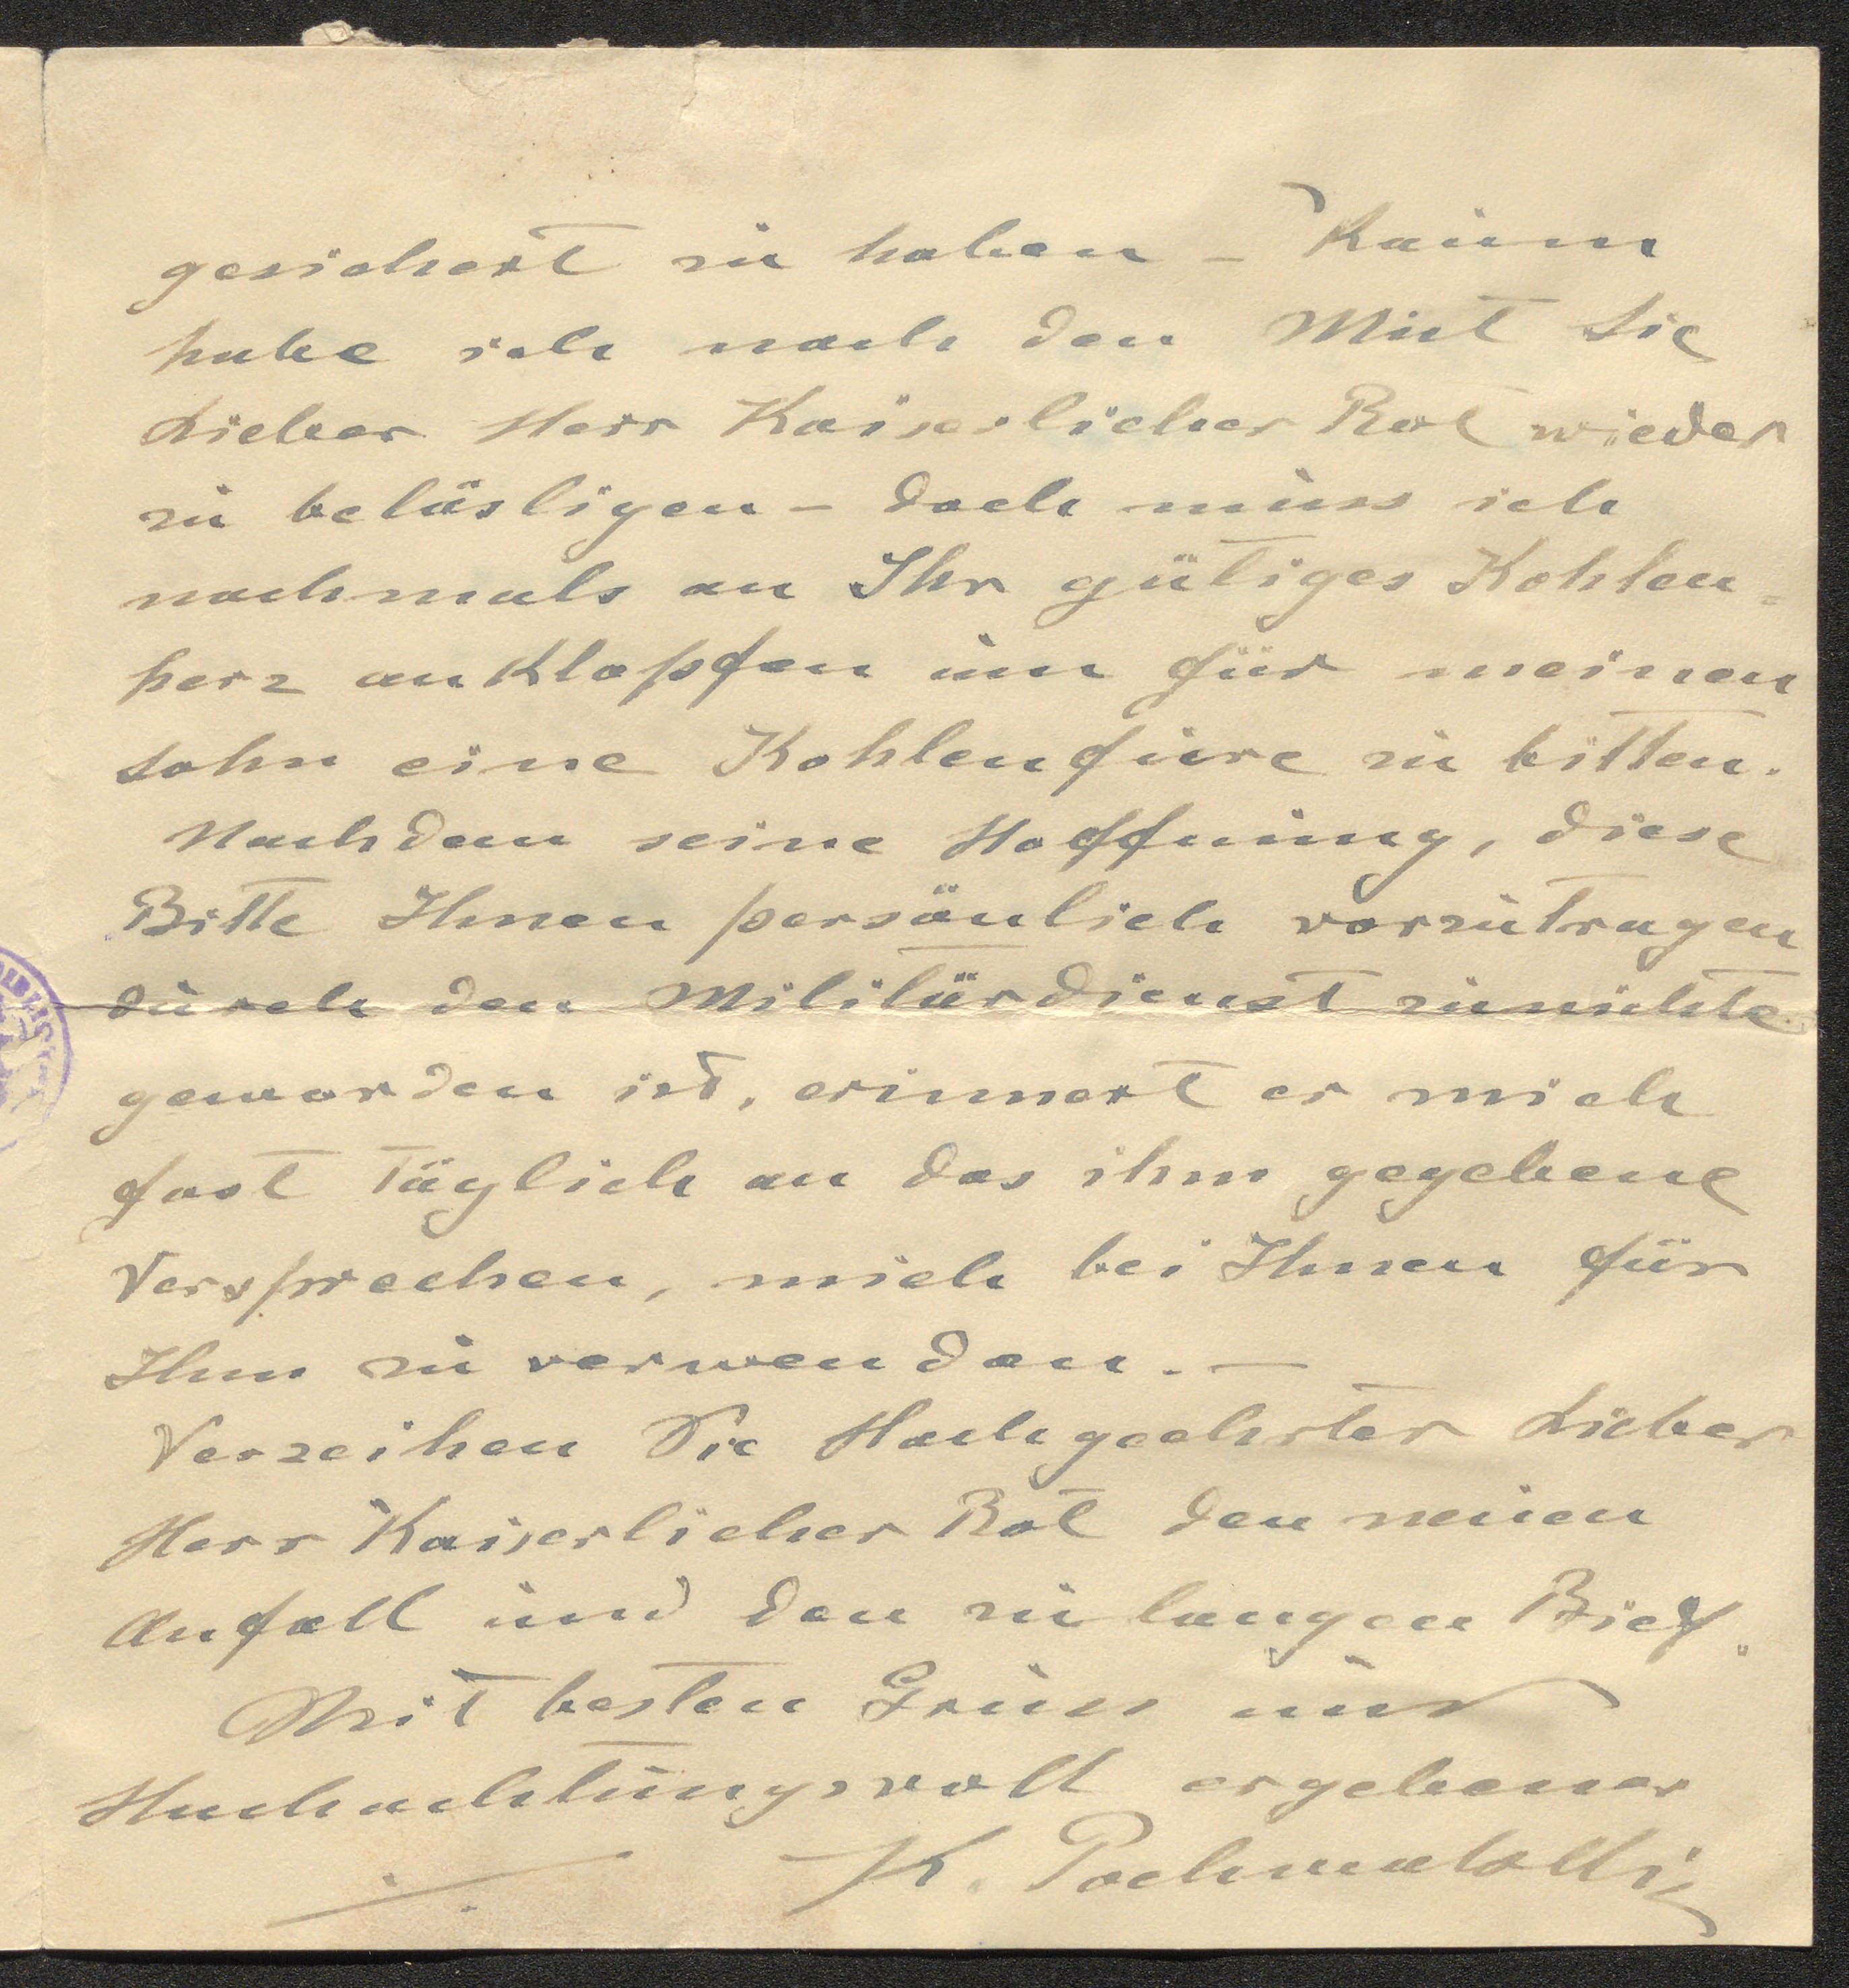 gesichert zu haben – Kaum
habe ich noch den Mut Sie
Lieber Herr Kaiserlicher Rat wieder
zu belästigen – doch muss ich
nochmals an Ihr gütiges Kohlen=
herz anklopfen um für meinen
Sohn eine Kohlenfure zu bitten.
Nachdem seine Hoffnung, diese
Bitte Ihnen persönlich vorzutragen
durch den Militärdienst zunichte
geworden ist, erinnert er mich
fast täglich an das ihm gegebene
Versprechen, mich bei Ihnen für
Ihm zu verwenden. —
Verzeihen Sie Hochgeehrter Lieber
Herr Kaiserlicher Rat den neuen
Anfall und den zu langen Brief.
Mit besten Gruss und
Hochachtungsvoll ergebener
K.